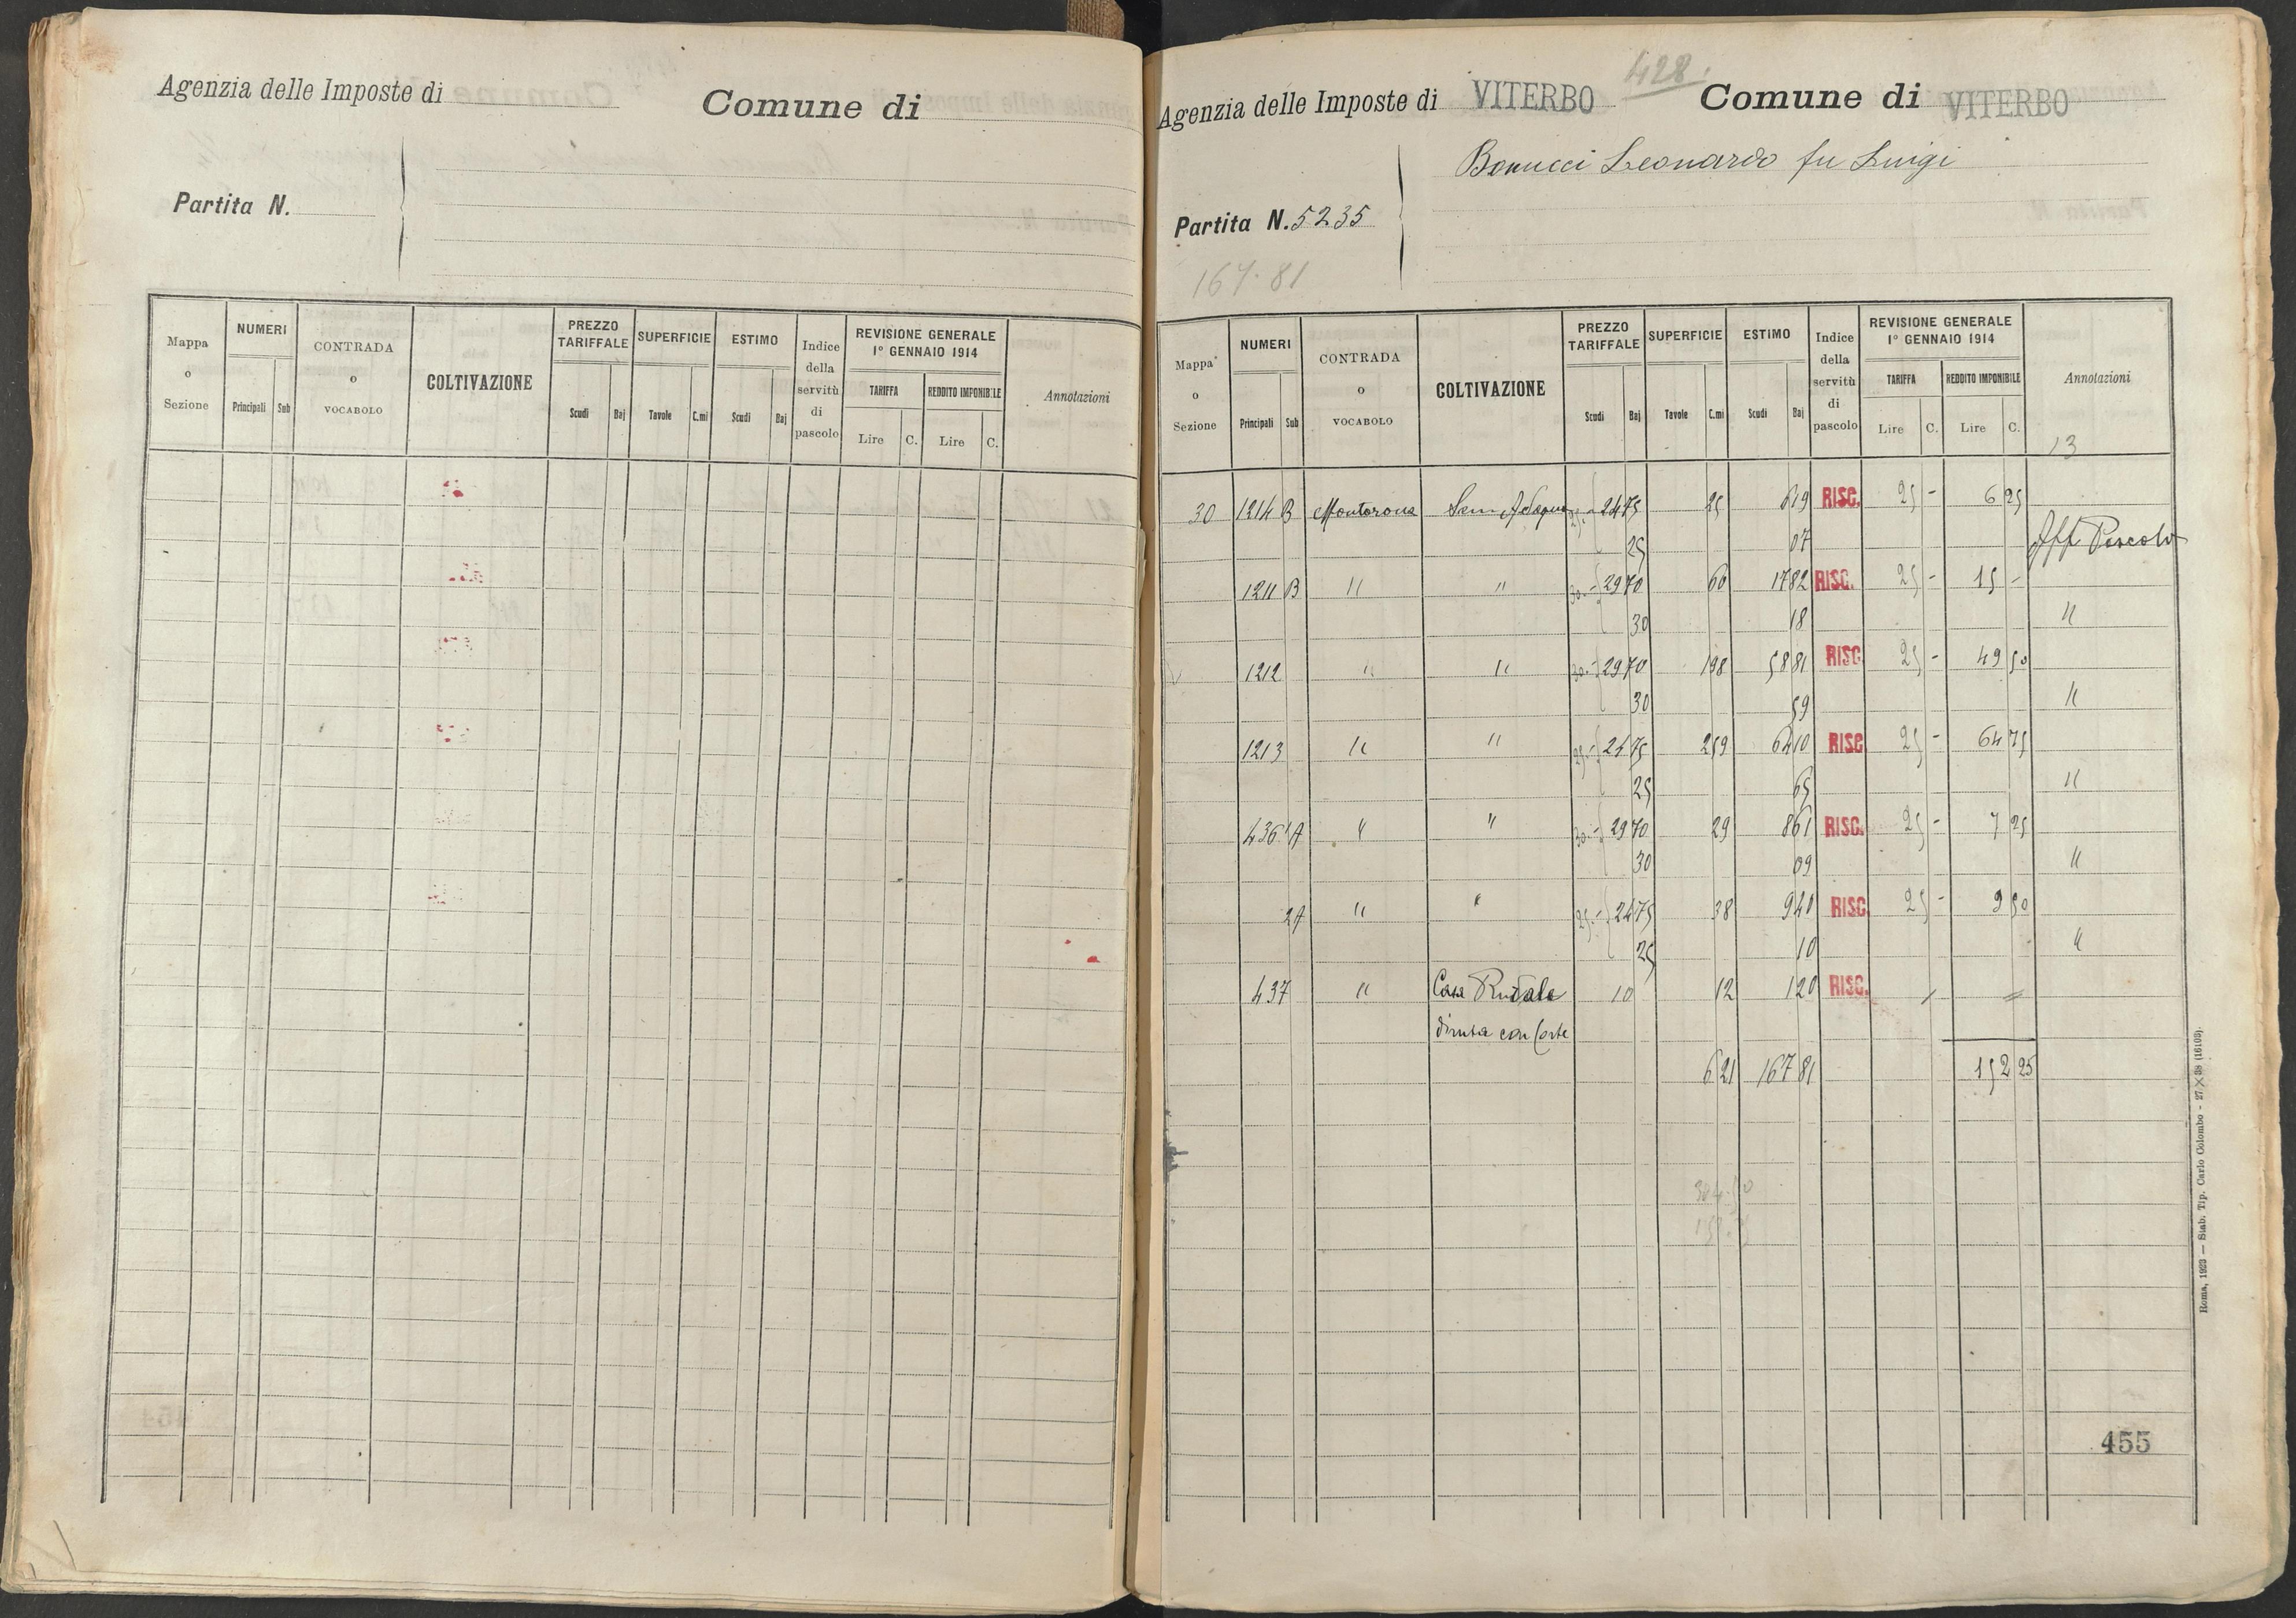 Agenzia delle Imposte di
Comune di
Partita N.
Mappa o Sezione
NUMERI
Principali Sub
CONTRADA o VOCABOLO
COLTIVAZIONE
PREZZO TARIFFALE
Scudi Baj
SUPERFICIE
Tavole C.mi
ESTIMO
Scudi Baj
Indice della servitù di pascolo
REVISIONE GENERALE
1° GENNAIO 1914
TARIFFA
Lire C.
REDDITO IMPONIBILE
Lire C.
Annotazioni
428.
Agenzia delle Imposte di VITERBO Comune di VITERBO
Bonucci Leonardo fu Luigi
Partita N. 5235
167.81
Mappa o Sezione
NUMERI
Principali Sub
CONTRADA o VOCABOLO
COLTIVAZIONE
PREZZO TARIFFALE
Scudi Baj
SUPERFICIE
Tavole C.mi
ESTIMO
Scudi Baj
Indice della servitù di pascolo
REVISIONE GENERALE
1° GENNAIO 1914
TARIFFA
Lire C.
REDDITO IMPONIBILE
Lire C.
Annotazioni
13
30 1214 B Montorone Sem. 25.- 24 75 25 6 19 RISC. 25 - 6 25
25 07 Aff. Pascolo
1211 B " " 30.- 29 70 60 17 82 RISC. 25 - 15 -
30 18 "
1212 " " 30.- 29 70 1 98 58 81 RISC. 25 - 49 50
30 59 "
1213 " " 25.- 24 75 2 59 64 10 RISC. 25 - 64 75
25 65 "
436 1A " " 30.- 29 70 29 8 61 RISC. 25 - 7 25
30 09 "
2A " " 25.- 24 75 38 9 40 RISC. 25 - 9 50
25 10 "
437 " Casa Rurale 10 12 1 20 RISC.
diruta con Corte
6 21 167 81 152 25
455
Roma, 1923 — Stab. Tip. Carlo Colombo - 27 × 38 (16103).